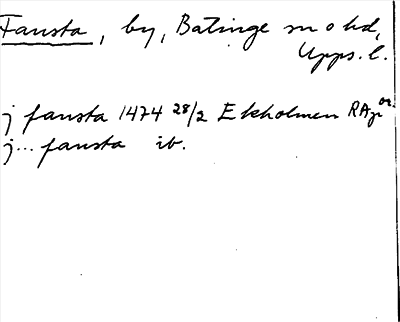 Fausta, by, Balinge sn o hd,
Upps. l.
j fausta 1474 28/2 Ekholmen RAp or.
j... fausta ib.